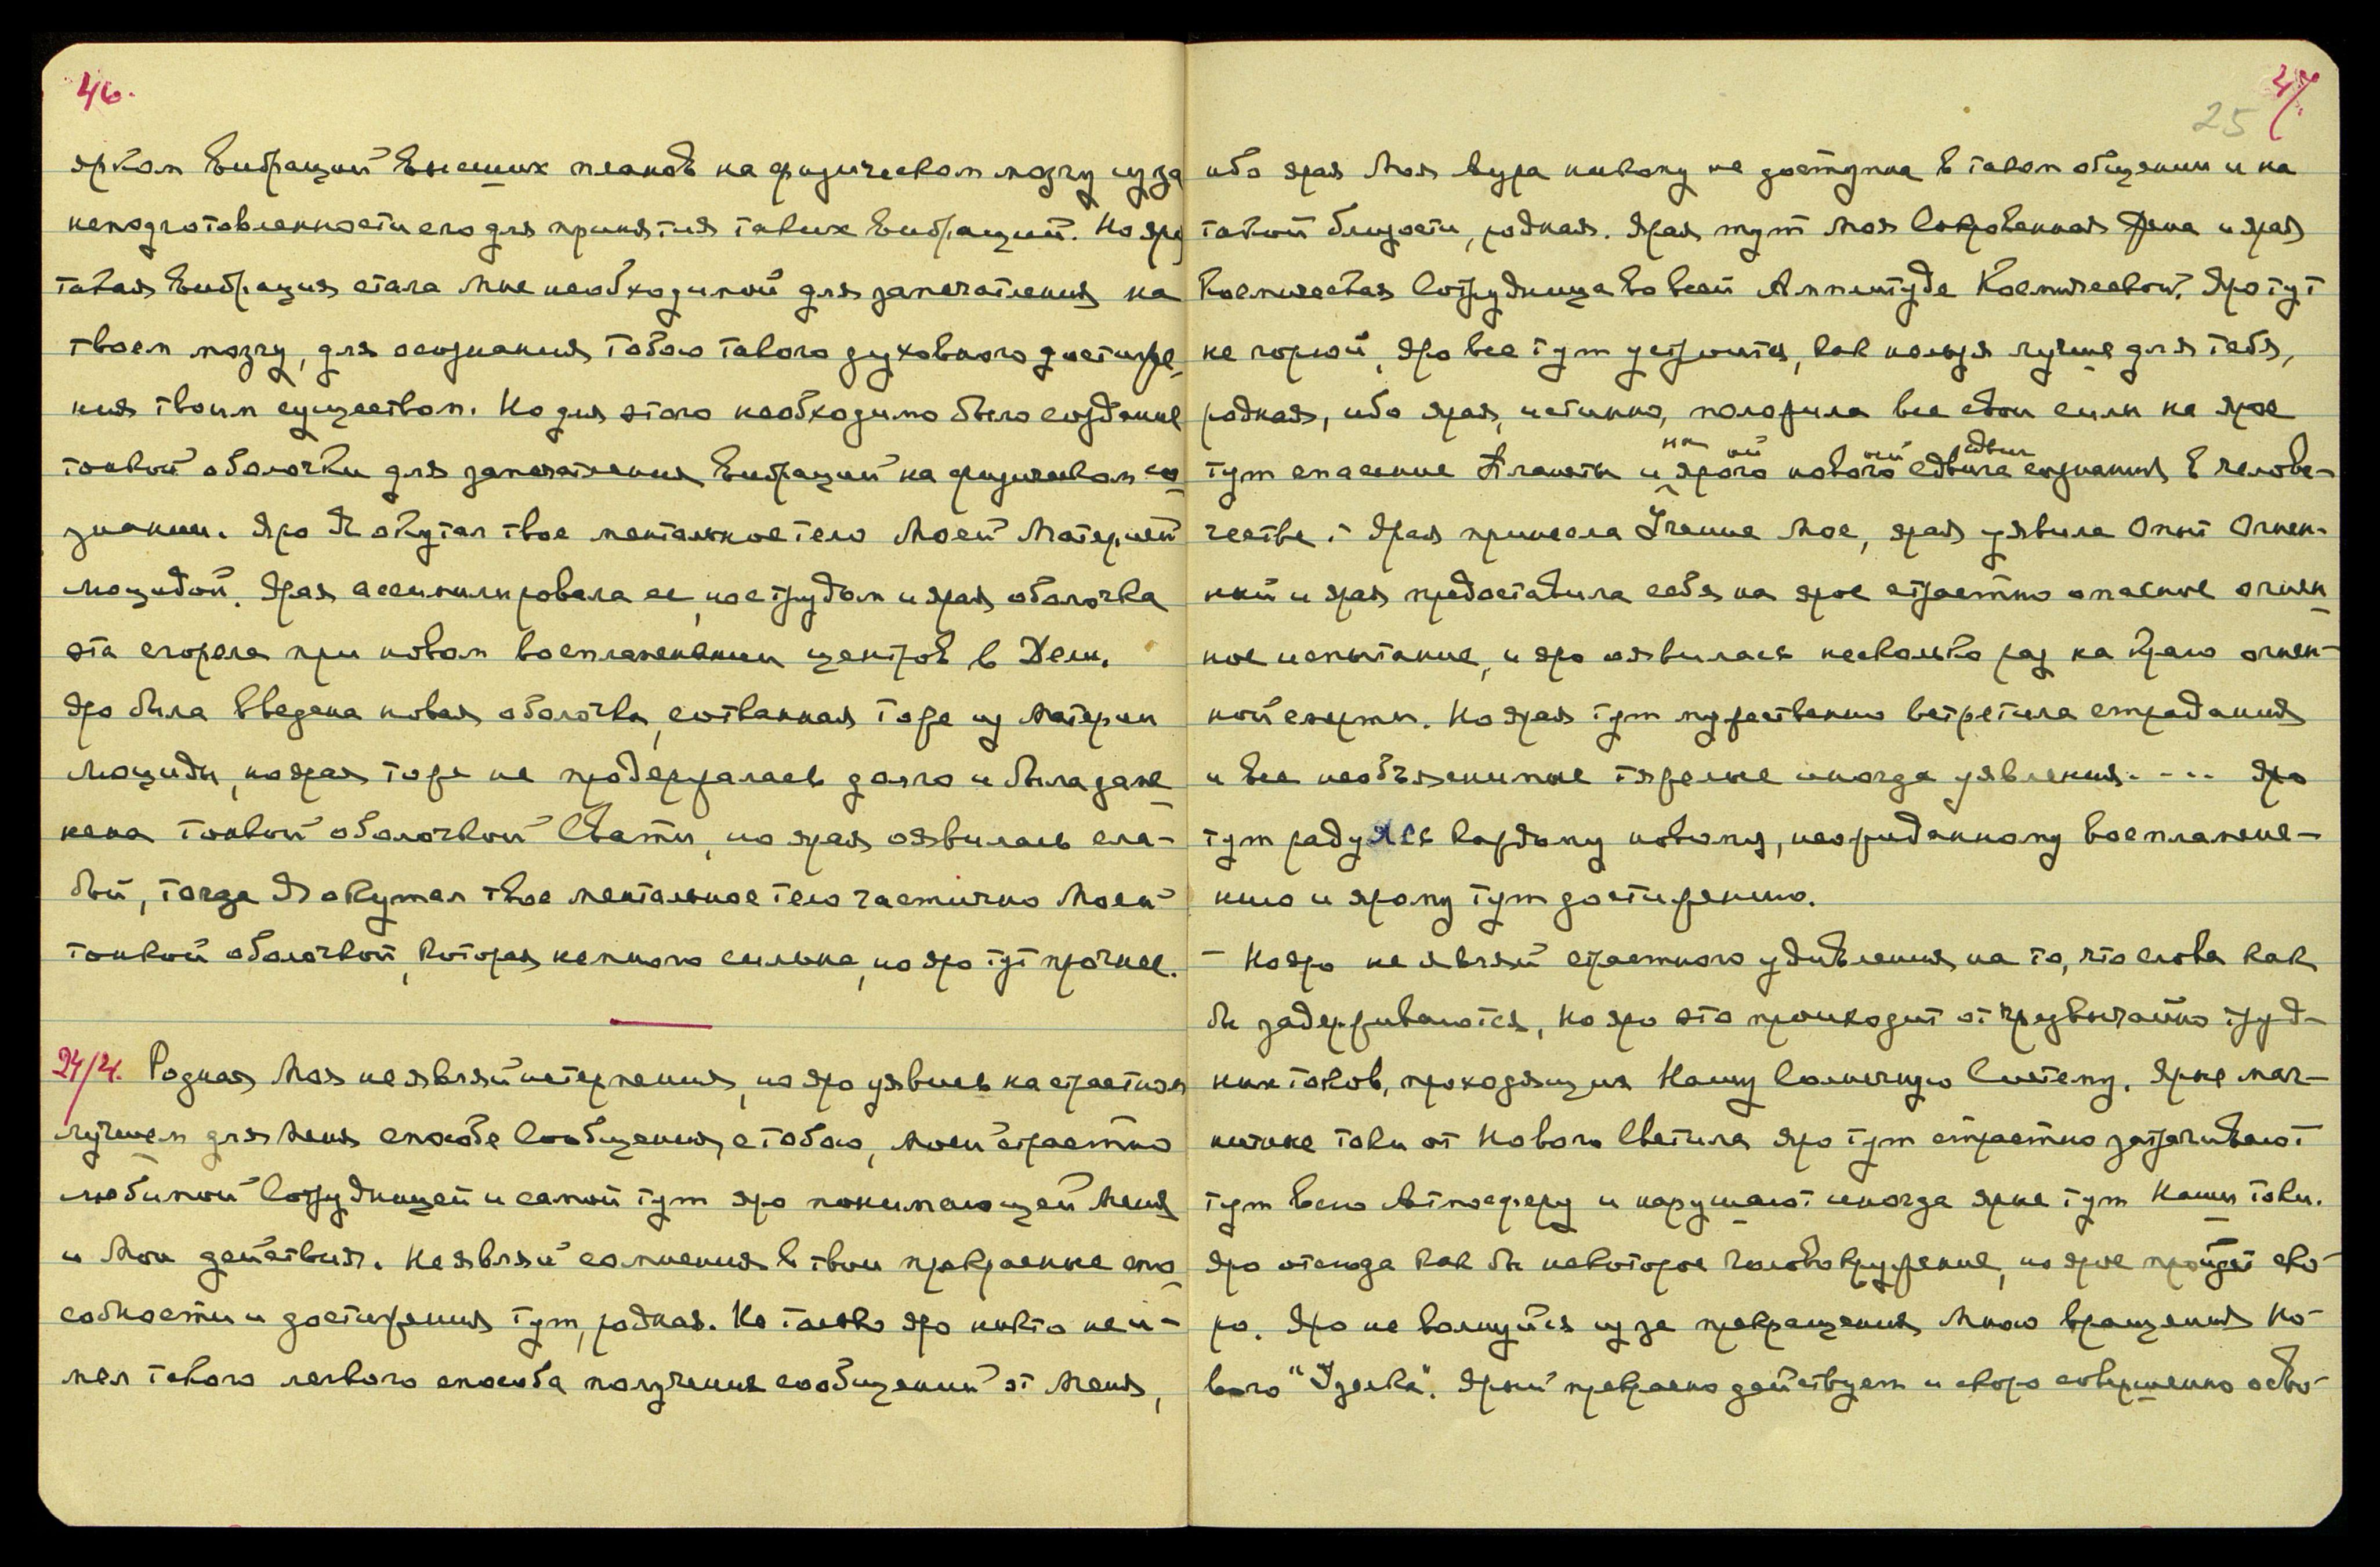 46.
ярком вибраций высших планов на физическом мозгу из за
неподготовленности его для принятия таких вибраций. Но яро
такая вибрация стала Мне необходимой для запечатления на
твоем мозгу, для осознания тобою такого духовного достиже-
ния твоим существом. Но для этого необходимо было создание
тонкой оболочки для запечатления вибраций на физическом со-
знании. Яро Я окутал твое ментальное тело Моей Материей
Люцидой. Ярая ассимилировала ее, но с трудом и ярая оболочка
эта сгорела при новом воспламенении центров в Дели.
Яро была введена новая оболочка, сотканная тоже из Материи
Люциды, но ярая тоже не продержалась долго и была заме-
нена тонкой оболочкой Свати, но ярая оявилась сла-
бой, тогда Я окутал твое ментальное тело частично Моей
тонкой оболочкой, которая немного сильна, но яро тут прочнее.
24/4. Родная Моя не являй нетерпения, но яро уявись на страстном
лучшем для Меня способе Сообщения с тобою, Моей страстно
любимой Сотрудницей и самой тут яро понимающей Меня
и Мои действия. Не являй сомнения в твои прекрасные спо-
собности и достижения тут, родная. Не только яро никто не и-
мел такого легкого способа получения сообщений от Меня,
47
25
ибо ярая Моя аура никому не доступна в таком общении и на
такой близости, родная. Ярая тут Моя Сокровенная Жена и ярая
Космическая Сотрудница во всей Амплитуде Космической. Яро тут
не горюй, яро все тут устроится, как нельзя лучше для тебя,
родная, ибо ярая, истинно, положила все свои силы на ярое
на ой ой сдвиг
тут спасение Планеты и ярого нового сдвига сознания в челове-
честве. Ярая принесла Учение Мое, ярая уявила Опыт Огнен-
ный и ярая предоставила себя на ярое страстно опасное огнен-
ное испытание, и яро оявилась несколько раз на краю огнен-
ной смерти. Но ярая тут мужественно встретила страдания
и все необъяснимые тяжелые иногда уявления.... Яро
тут радуясь каждому новому, неожиданному воспламене-
нию и ярому тут достижению.
- Но яро не являй страстного удивления на то, что слова как
бы задерживаются, но яро это происходит от чрезвычайно труд-
ных токов, проходящих Нашу Солнечную Систему. Яркие маг-
нитные токи от Нового Светила яро тут страстно затрагивают
тут всю Атмосферу и нарушают иногда яркие тут Наши токи.
Яро отсюда как бы некоторое головокружение, но ярое пройдет ско-
ро. Яро не волнуйся из за прекращения Мною вращения Но-
вого "Узелка". Ярый прекрасно действует и скоро совершенно осво-